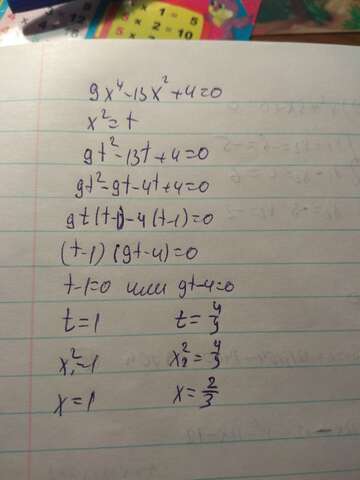 × 1 = 5
5 × 2 = 10
9x⁴-13x²+4=0
x²=t
9t²-13t+4=0
9t²-9t-4t+4=0
9t(t-1)-4(t-1)=0
(t-1)(9t-4)=0
t-1=0 или 9t-4=0
t=1 t=4/3
x₁²=1 x₂²=4/3
x=1 x=2/3